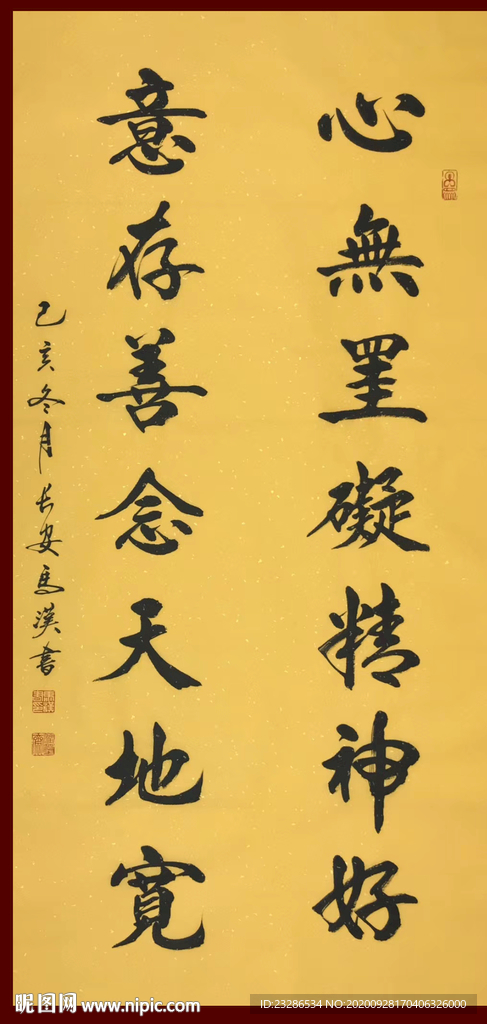 心無罣礙精神好
意存善念天地寬
己亥冬月長安馬漢書
昵图网 www.nipic.com
ID:23286534 NO:20200928170406326000